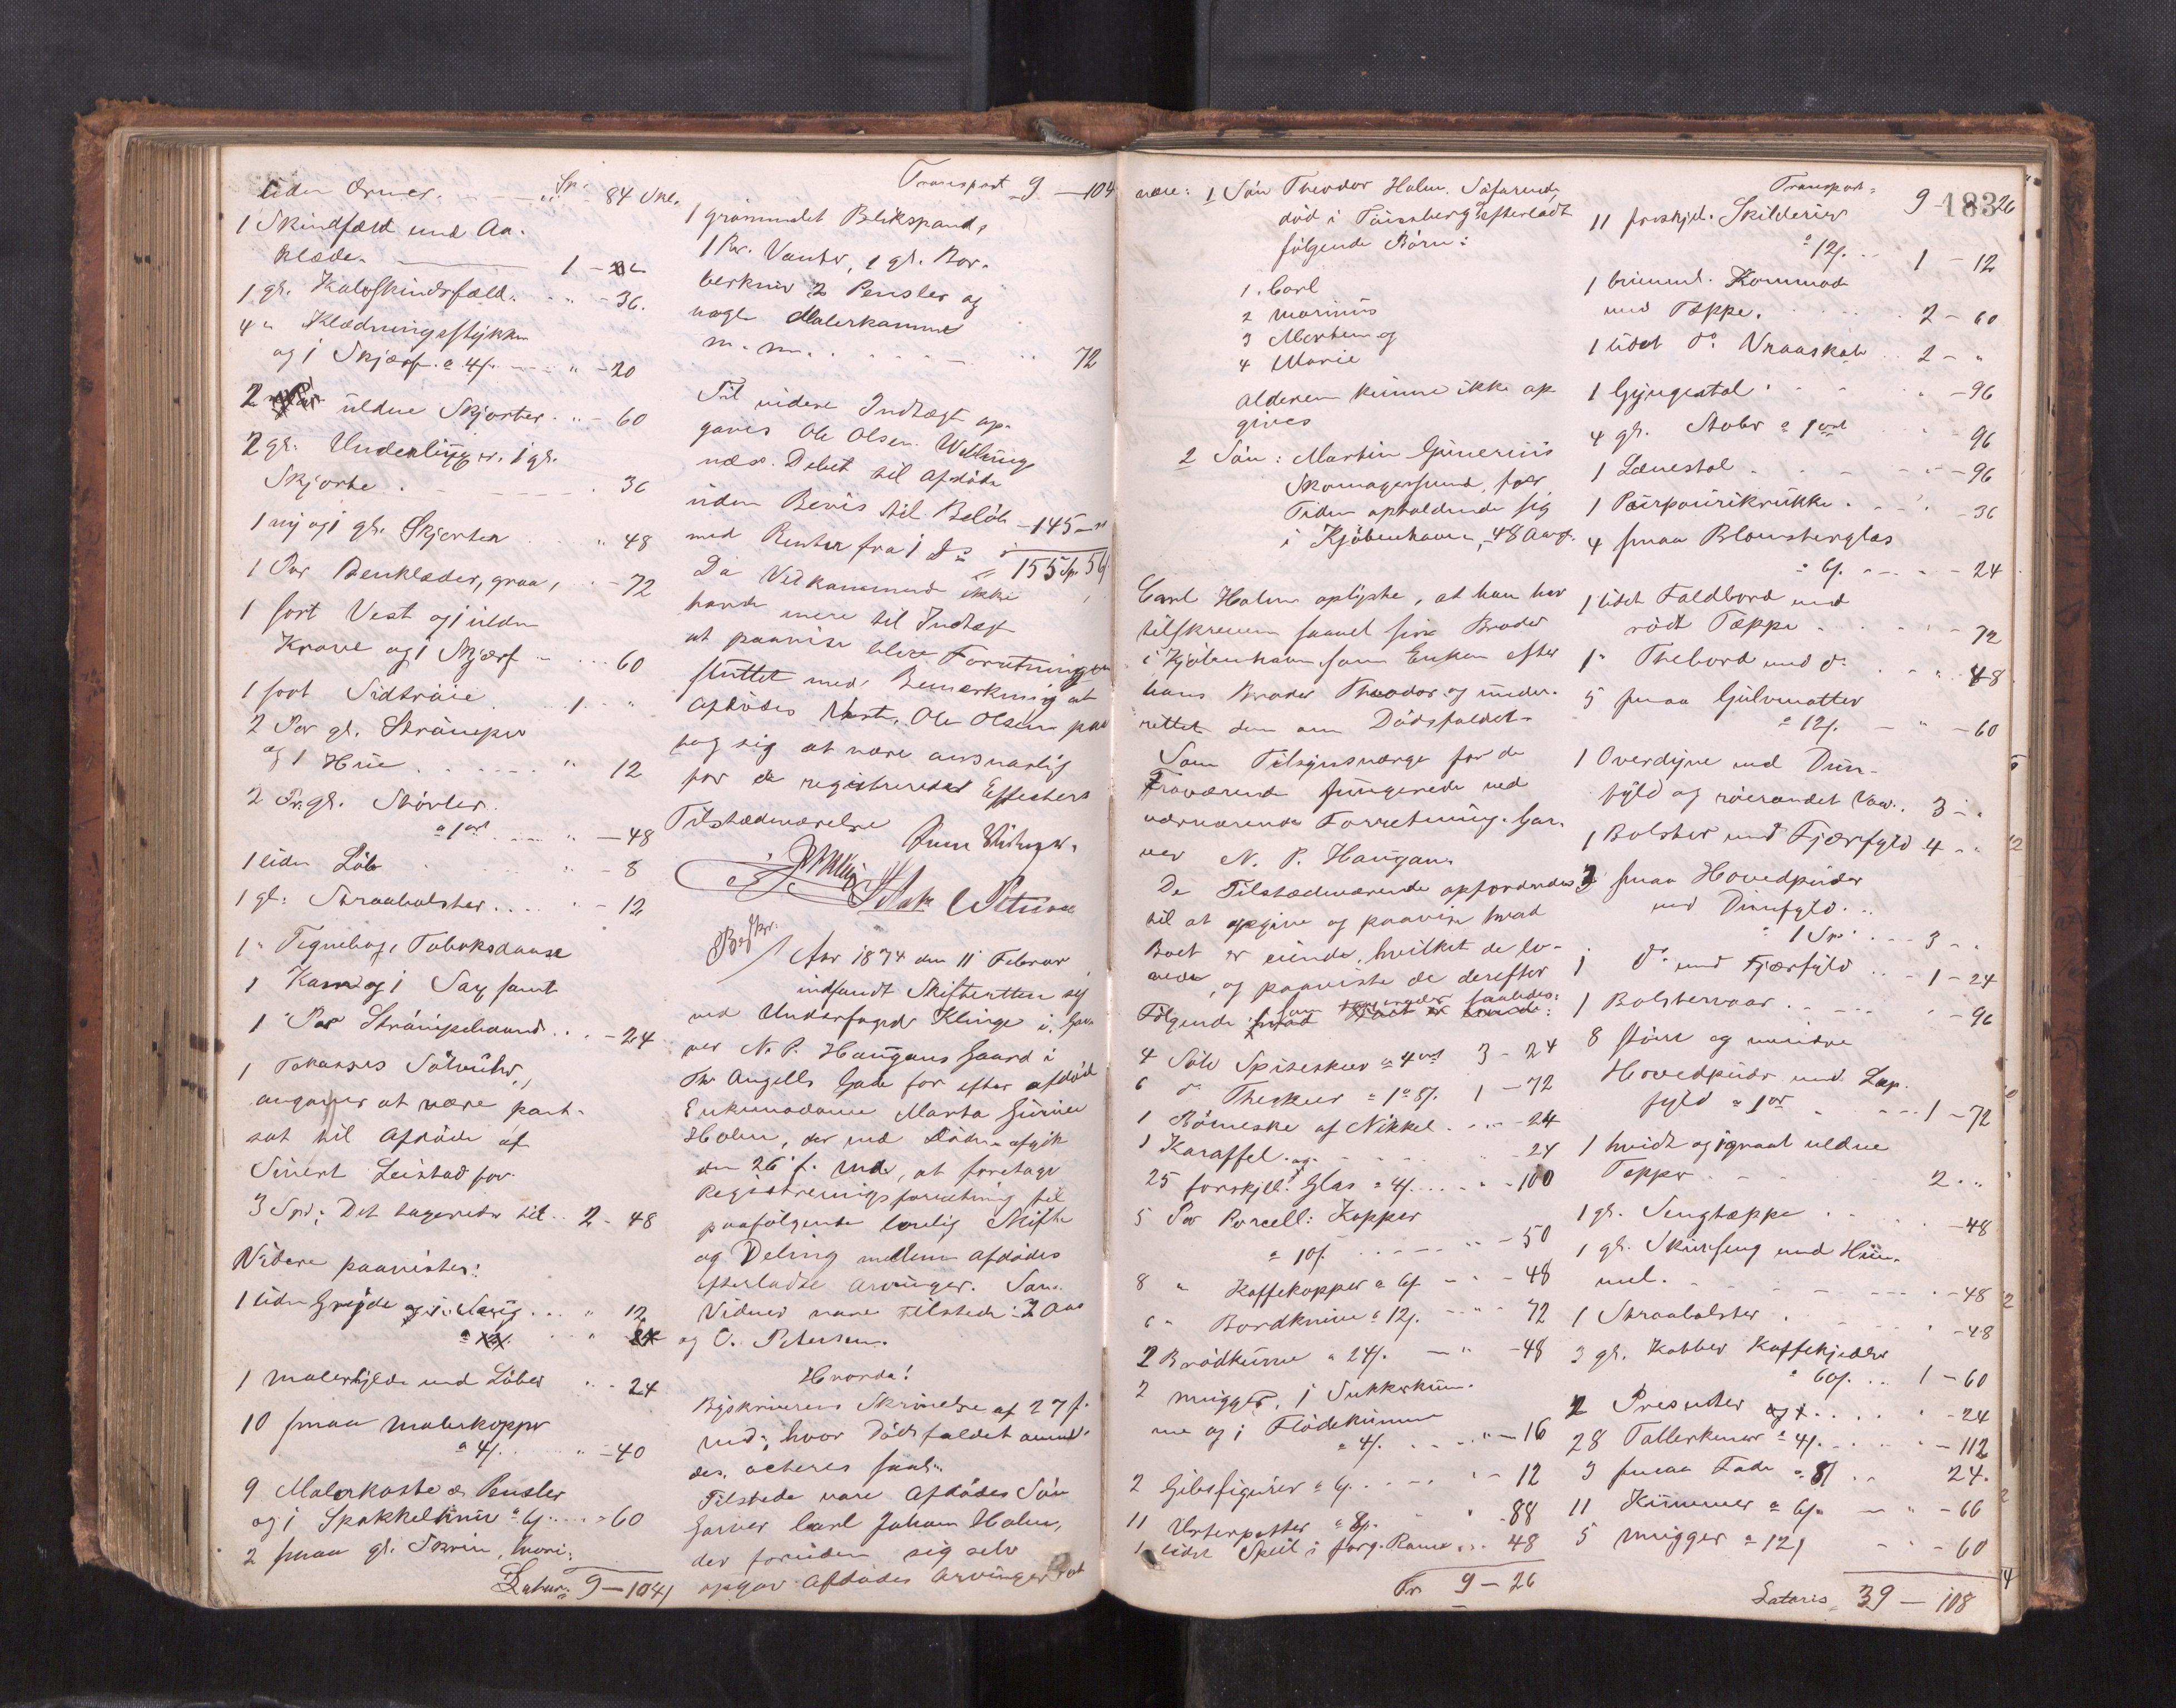 uden Ærmer. Sp. " 84 Skl.
1 Skindfæld med Aa-
klæde. 1 -
1 gl. Kalvskindsfæld. " - 36.
4 " Klædningsstykker
og 1 Skjærf. a 4 s. " - 20
2 uldne Skjorter. " - 60
2 gl. Underliv 1 gl.
Skjorte. 36
1 ny og 1 gl. Skjorter " 48
1 Par Benklæder, graa, - 72
1 sort Vest og 1 ulden
Krave og 1 Skjærf - 60
1 sort Sidtrøie 1 "
2 Par gl. Strømper
og 1 Hue " 12
2 Pr. gl. Støvler
a 1 ort " - 48
1 liden Løb " - 8
1 gl. Straabolster " - 12
1 " Tegnebog, Tobaksdaase
1 Kam og 1 Sax samt
1 Par Strømpebaand - 24
1 Tokasses Sølvuhr,
angives at være pant-
sat til Afdøde af
Sivert Leistad for
3 Spd; Det tageredes til 2 - 48
Videre paavistes:
1 liden Gryde og 1 " 12
" 24
1 Malerhylde med Løber " - 24
10 smaa Malerkopper
a 4 s. " - 40
9 Malerkoste & Pensler
og 1 Spakkelkniv a 6 s. - 60
2 smaa gl. Skrin, hvori:
Latus: 9 - 104
Transport 9 - 104
1 grønmalet Blikspand,
1 Par. Vanter, 1 gl. Bar-
berkniv 2 Pensler og
nogle Malerkamme
m. m. " 72
Til videre Indtægt op-
gaves Ole Olsen
næs. Debet til Afdøde
uden Bevis til Beløb - 145 - "
med Renter fra 1
155 Sp. 56
Da Vedkommende ikke
havde mere til Indtægt
at paavise blev Forretningen
sluttet med Bemærkning at
Afdødes Vært, Ole Olsen paa
tog sig at være ansvarlig
for de registrerede Effecter
Tilstedeværelse
Aar 1874 den 11 Februar
indfandt Skifteretten sig
ved Underfoged Klinge i Gar-
ver N. P. Haugans Gaard i
Th. Angells Gade for efter afdød
Enkemadame Marta
Holm, der ved Døden afgik
den 26 f. Md., at foretage
Registreringsforretning til
paafølgende lovlig Skifte
og Deling mellem afdødes
efterladte Arvinger. Som
Vidner vare tilstede: J. Aas
og O. Petersen.
Hvorda!
Byskriverens Skrivelse af 27 f.
Md., hvor Dødsfaldet anmel-
des, acteres saal.
Tilstede vare Afdødes Søn
Garver Carl Johan Holm,
der foruden sig selv
opgav Afdødes Arvinger at
være: 1 Søn Theodor Holm. Søfarende,
død i Tønsberg efterladt
følgende Børn:
1. Carl
2 Marinus
3 Morten og
4 Marie
Alderen kunne ikke op
gives
2 Søn: Martin Gunerius
Skomagersvend, for
Tiden opholdende sig
i Kjøbenhavn, 48 Aar gl.
Carl Holm oplyste, at han har
tilskreven saavel sin Broder
i Kjøbenhavn som Enken efter
hans Broder Theodor og under-
rettet dem om Dødsfaldet.
Som Tilsynsværge for de
Fraværende fungerede ved
nærværende Forretning Gar-
ver N. P. Haugan.
De Tilstedeværende opfordredes
til at opgive og paavise hvad
Boet er eiende, hvilket de lo-
vede, og paaviste de derefter
Følgende som saaledes:
4 Sølv Spiseskeer a 4 ort 3 - 24
6 do Theskeer a 1 ort 8 s. 1 - 72
1 Rømeske af Nikkel - 24
1 Karaffel og 24
25 forskjell. Glas a 4 s. - 100
5 Par Porcell: Kopper
a 10 s. " - 50
8 " Kaffekopper a 6 s. - 48
6 " Bordknive a 12 s. 72
2 Brødkurve a 24 s. - " - 48
2 Mugger, 1 Sukkerkum-
me og 1 Flødekumme
a 4 s. " - 16
2 Gibsfigurer a 6 s. - 12
11 Urtepotter a 8 s. - 88
1 lidet Speil i forg. Rame 48
Tr. 9 - 26
Transport 9 - 26
183
11 forskjel. Skilderier
a 12 s. 1 - 12
1 brunmal. Kommode
med Tæppe. 2 - 60
1 lidet do Vraaskab 2 - "
1 Gyngestol " - 96
4 gl. Stole a 1 ort 96
1 Lænestol " - 96
1 Pourpourikrukke - 36
4 smaa Blomsterglas
a 6 s. - 24
1 lidet Faldbord med
rødt Tæppe - 72
1 " Thebord med do " 48
5 smaa Gulvmatter
a 12 s. - 60
1 Overdyne med Dun-
fyld og rørandet Vaar. 3 - "
1 Bolster med Fjærfyld 4 - "
3 smaa Hovedpuder
med Dunfyld.
a 1 Sp. 3 - "
1 do med Fjærfyld 1 - 24
1 Bolstervaar. " - 96
8 større og mindre
Hovedpuder med Lap-
fyld a 1 ort 1 - 72
1 hvidt og 1 graat uldne
Tepper 2 "
1 gl. Sengtæppe - 48
1 gl. Skuvseng med Him-
mel. - 48
1 Straabolster - 48
3 gl. Kobber Kaffekjedler
a 60 s. 1 - 60
2 Presenter - 24
28 Tallerkener a 4 s. - 112
3 smaa Fade a 8 s. 24.
11 Kummer a 6 s. - 66
5 Mugger a 12 s. - 60
Lateris 39 - 108